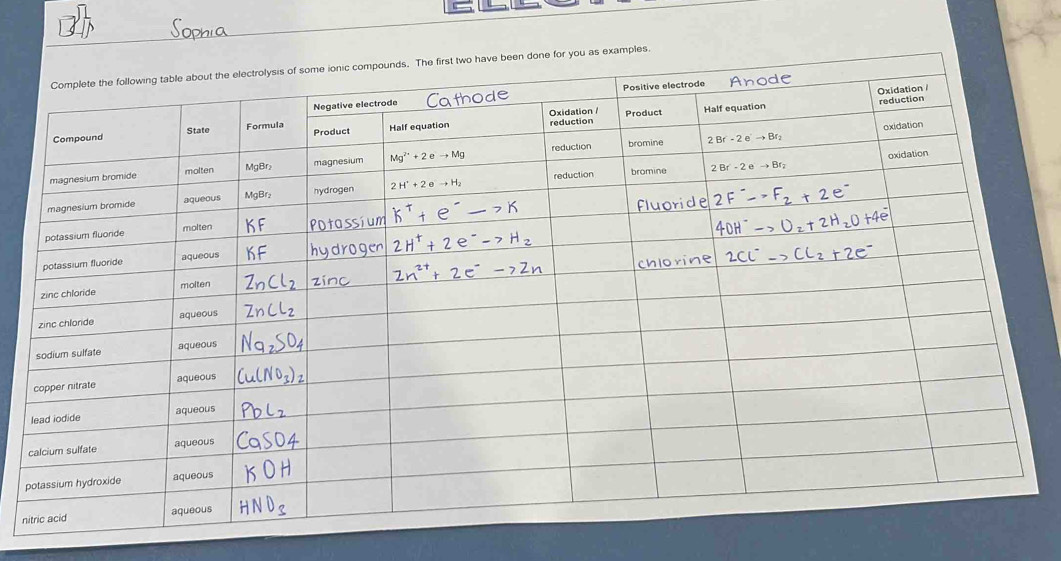 Sophia
Complete the following table about the electrolysis of some ionic compounds. The first two have been done for you as examples.
Negative electrode Cathode Positive electrode Anode
Compound State Formula Product Half equation Oxidation / reduction Product Half equation Oxidation / reduction
magnesium bromide molten MgBr₂ magnesium Mg²⁺ + 2 e⁻ → Mg reduction bromine 2 Br⁻ - 2 e⁻ → Br₂ oxidation
magnesium bromide aqueous MgBr₂ hydrogen 2 H⁺ + 2 e⁻ → H₂ reduction bromine 2 Br⁻ - 2 e⁻ → Br₂ oxidation
potassium fluoride molten KF potassium K⁺ + e⁻ —> K fluoride 2F⁻ -> F₂ + 2e⁻
potassium fluoride aqueous KF hydrogen 2H⁺ + 2e⁻ -> H₂ 4OH⁻ -> O₂ + 2H₂O + 4e⁻
zinc chloride molten ZnCl₂ zinc Zn²⁺ + 2e⁻ -> Zn chlorine 2Cl⁻ -> Cl₂ + 2e⁻
zinc chloride aqueous ZnCl₂
sodium sulfate aqueous Na₂SO₄
copper nitrate aqueous Cu(NO₃)₂
lead iodide aqueous PbI₂
calcium sulfate aqueous CaSO4
potassium hydroxide aqueous KOH
nitric acid aqueous HNO₃